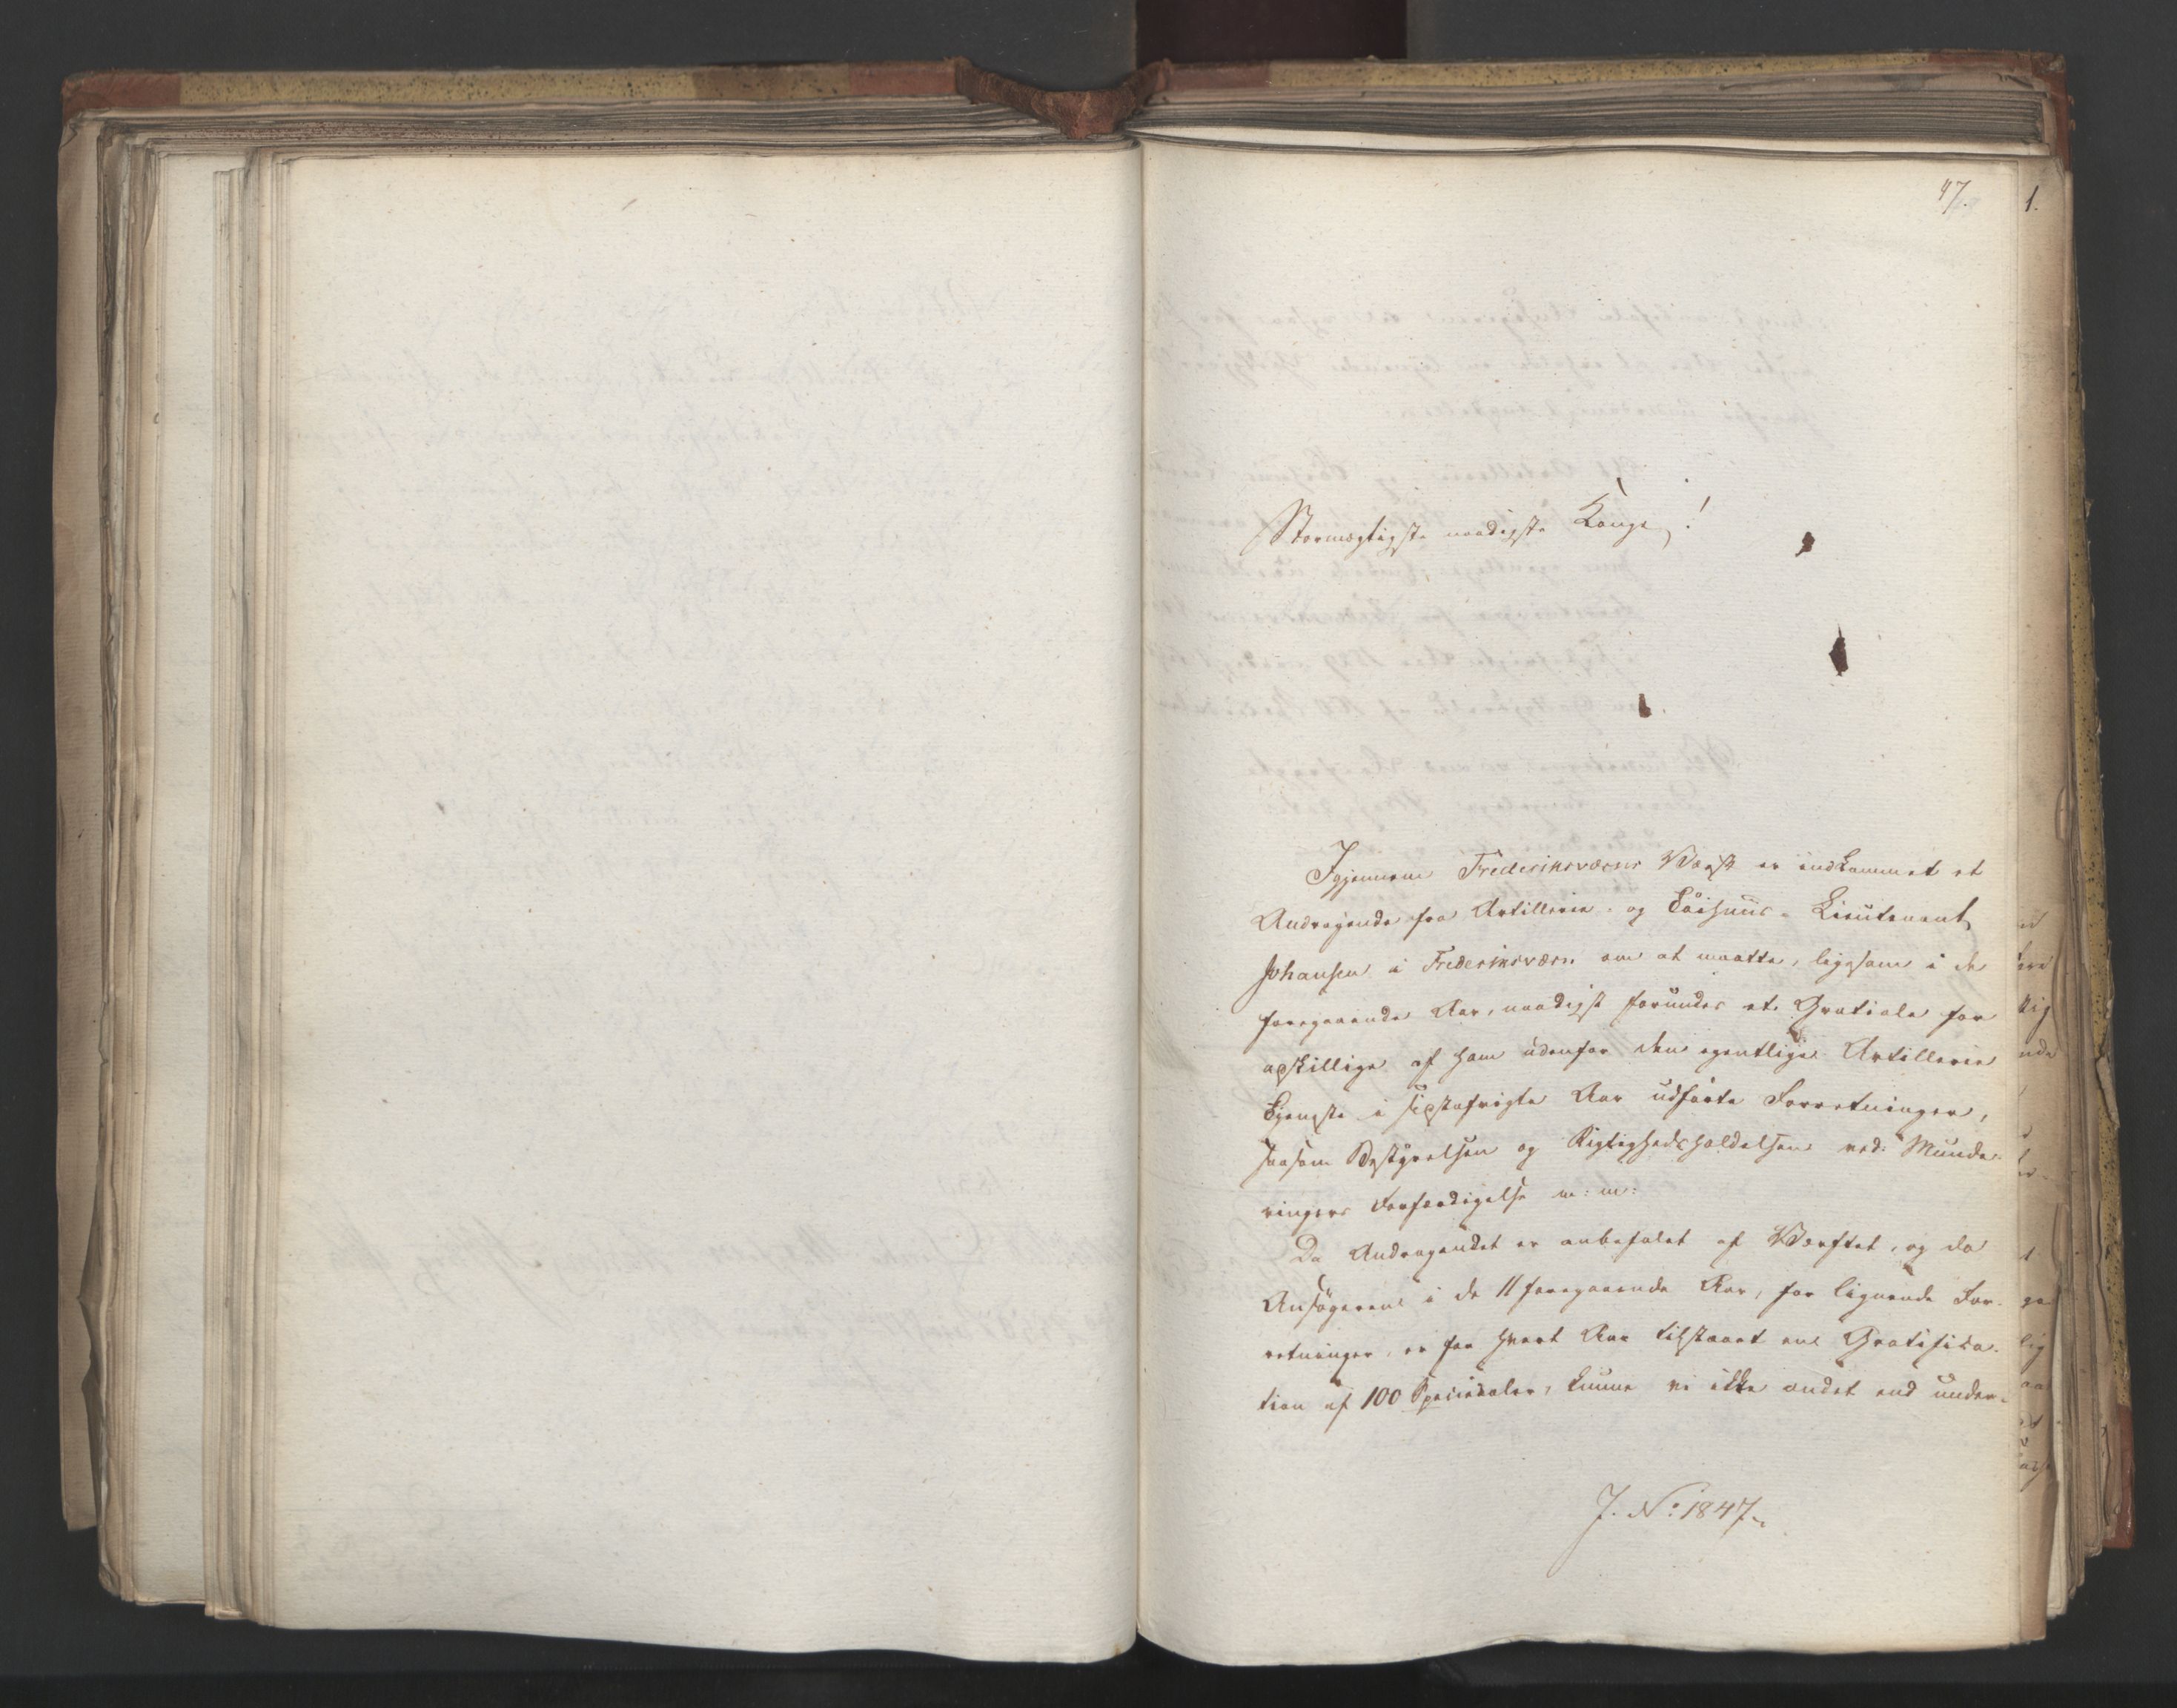 47.
1.
Stormægtigste naadigste Konge!
Igjennem Frederiksværns Værft er indkommet et
Andragende fra Artillerie- og Töihuus-Lieutenant
Johansen i Frederiksværn om at maatte, ligesom i de
foregaaende Aar, naadigst forundes et Gratiale for
adskillige af ham udenfor den egentlige Artillerie
Tjeneste i sidstafvigte Aar udförte Forretninger,
saasom Bestyrelsen og Rigtighedsholdelsen ved Munde-
ringers Forfærdigelse m: m:
Da Andragendet er anbefalet af Værftet, og da
Ansögeren i de 11 foregaaende Aar, for lignende For-
retninger, er for hvert Aar tilstaaet en Gratifica-
tion af 100 Speciedaler, kunne vi ikke andet end under-
J. No: 1847.